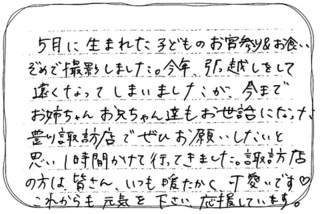 5月に生まれた子どものお宮参り&お食い
ぞめで撮影しました。今年、引っ越しをして
遠くなってしまいましたが、今まで
お姉ちゃんお兄ちゃん達もお世話になった、
豊川諏訪店でぜひお願いしたいと
思い1時間かけて行ってきました。諏訪店
の方は皆さん、いつも暖たかく、可愛いです♡
これからも元気を下さい。応援しています。